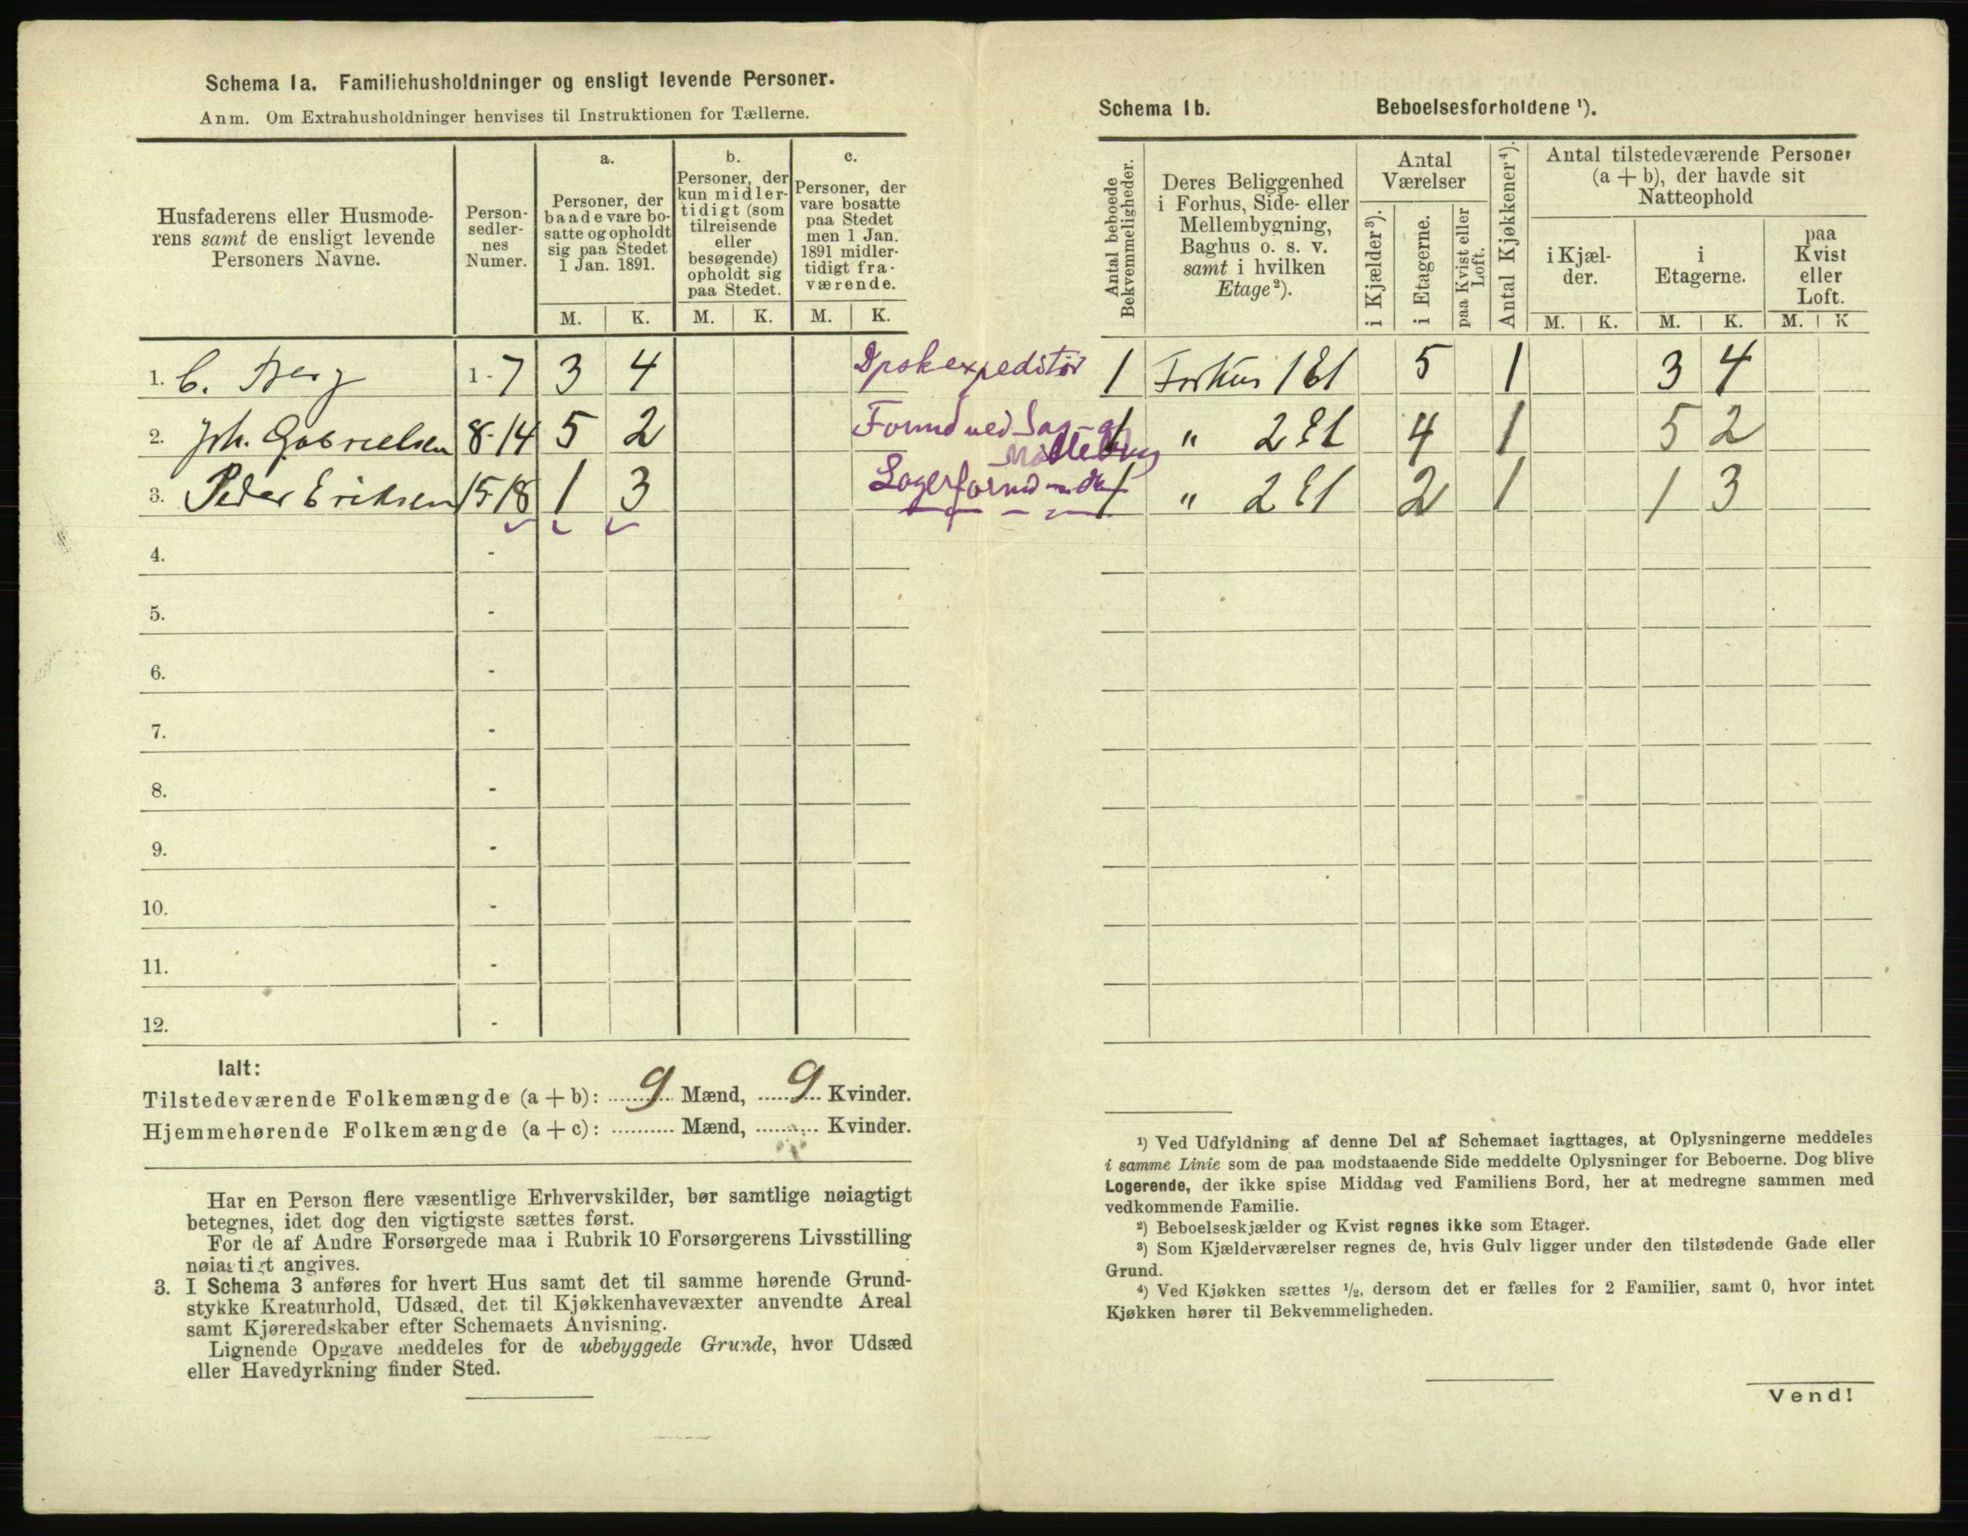 Schema 1a. Familiehusholdninger og ensligt levende Personer.
Anm. Om Extrahusholdninger henvises til Instruktionen for Tællerne.
Husfaderens eller Husmode-
rens samt de ensligt levende
Personers Navne.
Person-
sedler-
nes
Numer.
a.
Personer, der
baade vare bo-
satte og opholdt
sig paa Stedet
1 Jan. 1891.
b.
Personer, der
kun midler-
tidigt (som
tilreisende
eller
besøgende)
opholdt sig
paa Stedet.
c.
Personer, der
vare bosatte
paa Stedet
men 1 Jan.
1891 midler-
tidigt fra-
værende.
M. K. M. K. M. K.
1. C. Berg 1-7 3 4 Dpskexpeditør
2. Joh. Gabrielsen 8-14 5 2 Formd ved Sag- og
Møllebrug
3. Peder Eriksen 15-18 1 3 Lagerformd
4. -
5. -
6. -
7. -
8. -
9. -
10. -
11. -
12. -
Ialt:
Tilstedeværende Folkemængde (a + b): 9 Mænd, 9 Kvinder.
Hjemmehørende Folkemængde (a + c): .......... Mænd, .......... Kvinder.
Har en Person flere væsentlige Erhvervskilder, bør samtlige nøiagtigt
betegnes, idet dog den vigtigste sættes først.
For de af Andre Forsørgede maa i Rubrik 10 Forsørgerens Livsstilling
nøiagtigt angives.
3. I Schema 3 anføres for hvert Hus samt det til samme hørende Grund-
stykke Kreaturhold, Udsæd, det til Kjøkkenhavevæxter anvendte Areal
samt Kjøreredskaber efter Schemaets Anvisning.
Lignende Opgave meddeles for de ubebyggede Grunde, hvor Udsæd
eller Havedyrkning finder Sted.
Schema 1b. Beboelsesforholdene ¹).
Antal beboede
Bekvemmeligheder.
Deres Beliggenhed
i Forhus, Side- eller
Mellembygning,
Baghus o. s. v.
samt i hvilken
Etage²).
Antal
Værelser
i Kjælder³).
i Etagerne.
paa Kvist eller
Loft.
Antal Kjøkkener⁴).
Antal tilstedeværende Personer
(a + b), der havde sit
Natteophold
i Kjæl-
der.
i
Etagerne.
paa
Kvist
eller
Loft.
M. K. M. K. M. K
1 Forhus 1 Et 5 1 3 4
1 " 2 Et 4 1 5 2
1 " 2 Et 2 1 1 3
¹) Ved Udfyldning af denne Del af Schemaet iagttages, at Oplysningerne meddeles
i samme Linie som de paa modstaaende Side meddelte Oplysninger for Beboerne. Dog blive
Logerende, der ikke spise Middag ved Familiens Bord, her at medregne sammen med
vedkommende Familie.
²) Beboelseskjælder og Kvist regnes ikke som Etager.
³) Som Kjælderværelser regnes de, hvis Gulv ligger under den tilstødende Gade eller
Grund.
⁴) Ved Kjøkken sættes ½, dersom det er fælles for 2 Familier, samt 0, hvor intet
Kjøkken hører til Bekvemmeligheden.
Vend!